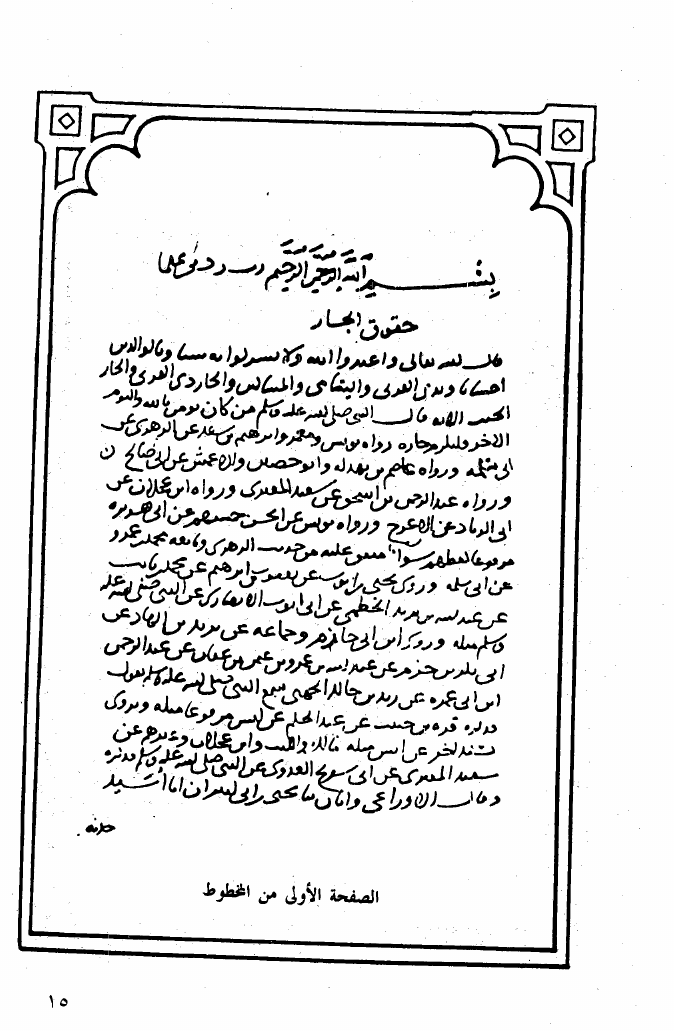 بسم الله الرحمن الرحيم رب زدني علما
حقوق الجار
قال الله تعالى واعبدوا الله ولا تشركوا به شيئا وبالوالدين
احسانا وبذي القربى واليتامى والمساكين والجار ذي القربى والجار
الجنب الآية قال النبي صلى الله عليه وسلم من كان يومن بالله واليوم
الاخر فليكرم جاره رواه يونس ومعمر وابرهيم بن سعد عن الزهري عن
ابي سلمة ورواه عاصم بن بهدلة وابو حصين والاعمش عن ابي صالح
ورواه عبد الرحمن بن اسحق عن سعيد المقبري ورواه ابن عجلان عن
ابي الزناد عن الاعرج ورواه يونس عن الحسن عن ابي هريرة
مرفوعا لفظهم سواء متفق عليه من حديث الزهري وتابعه محمد بن عمرو
عن ابي سلمة وروى يحيى بن ايوب عن يعقوب بن ابرهيم عن محمد بن ثابت
عن عبد الله بن يزيد الخطمي عن ابي ايوب الانصاري عن النبي صلى الله عليه
وسلم مثله وروى ابن ابي حازم وجماعة عن يزيد بن الهاد عن
ابي بكر بن حزم عن عبد الله بن عمرو بن عثمان عن عبد الرحمن
ابن ابي عمرة عن زيد بن خالد الجهني سمع النبي صلى الله عليه وسلم يقول
عن انس مرفوعا مثله ويروى
عن انس مثله مالك والليث وابن عجلان وغيرهم عن
سعيد المقبري عن ابي شريح العدوي عن النبي صلى الله عليه وسلم
وقال الاوزاعي وابان يحيى بن ابي
الصفحة الأولى من المخطوط
١٥